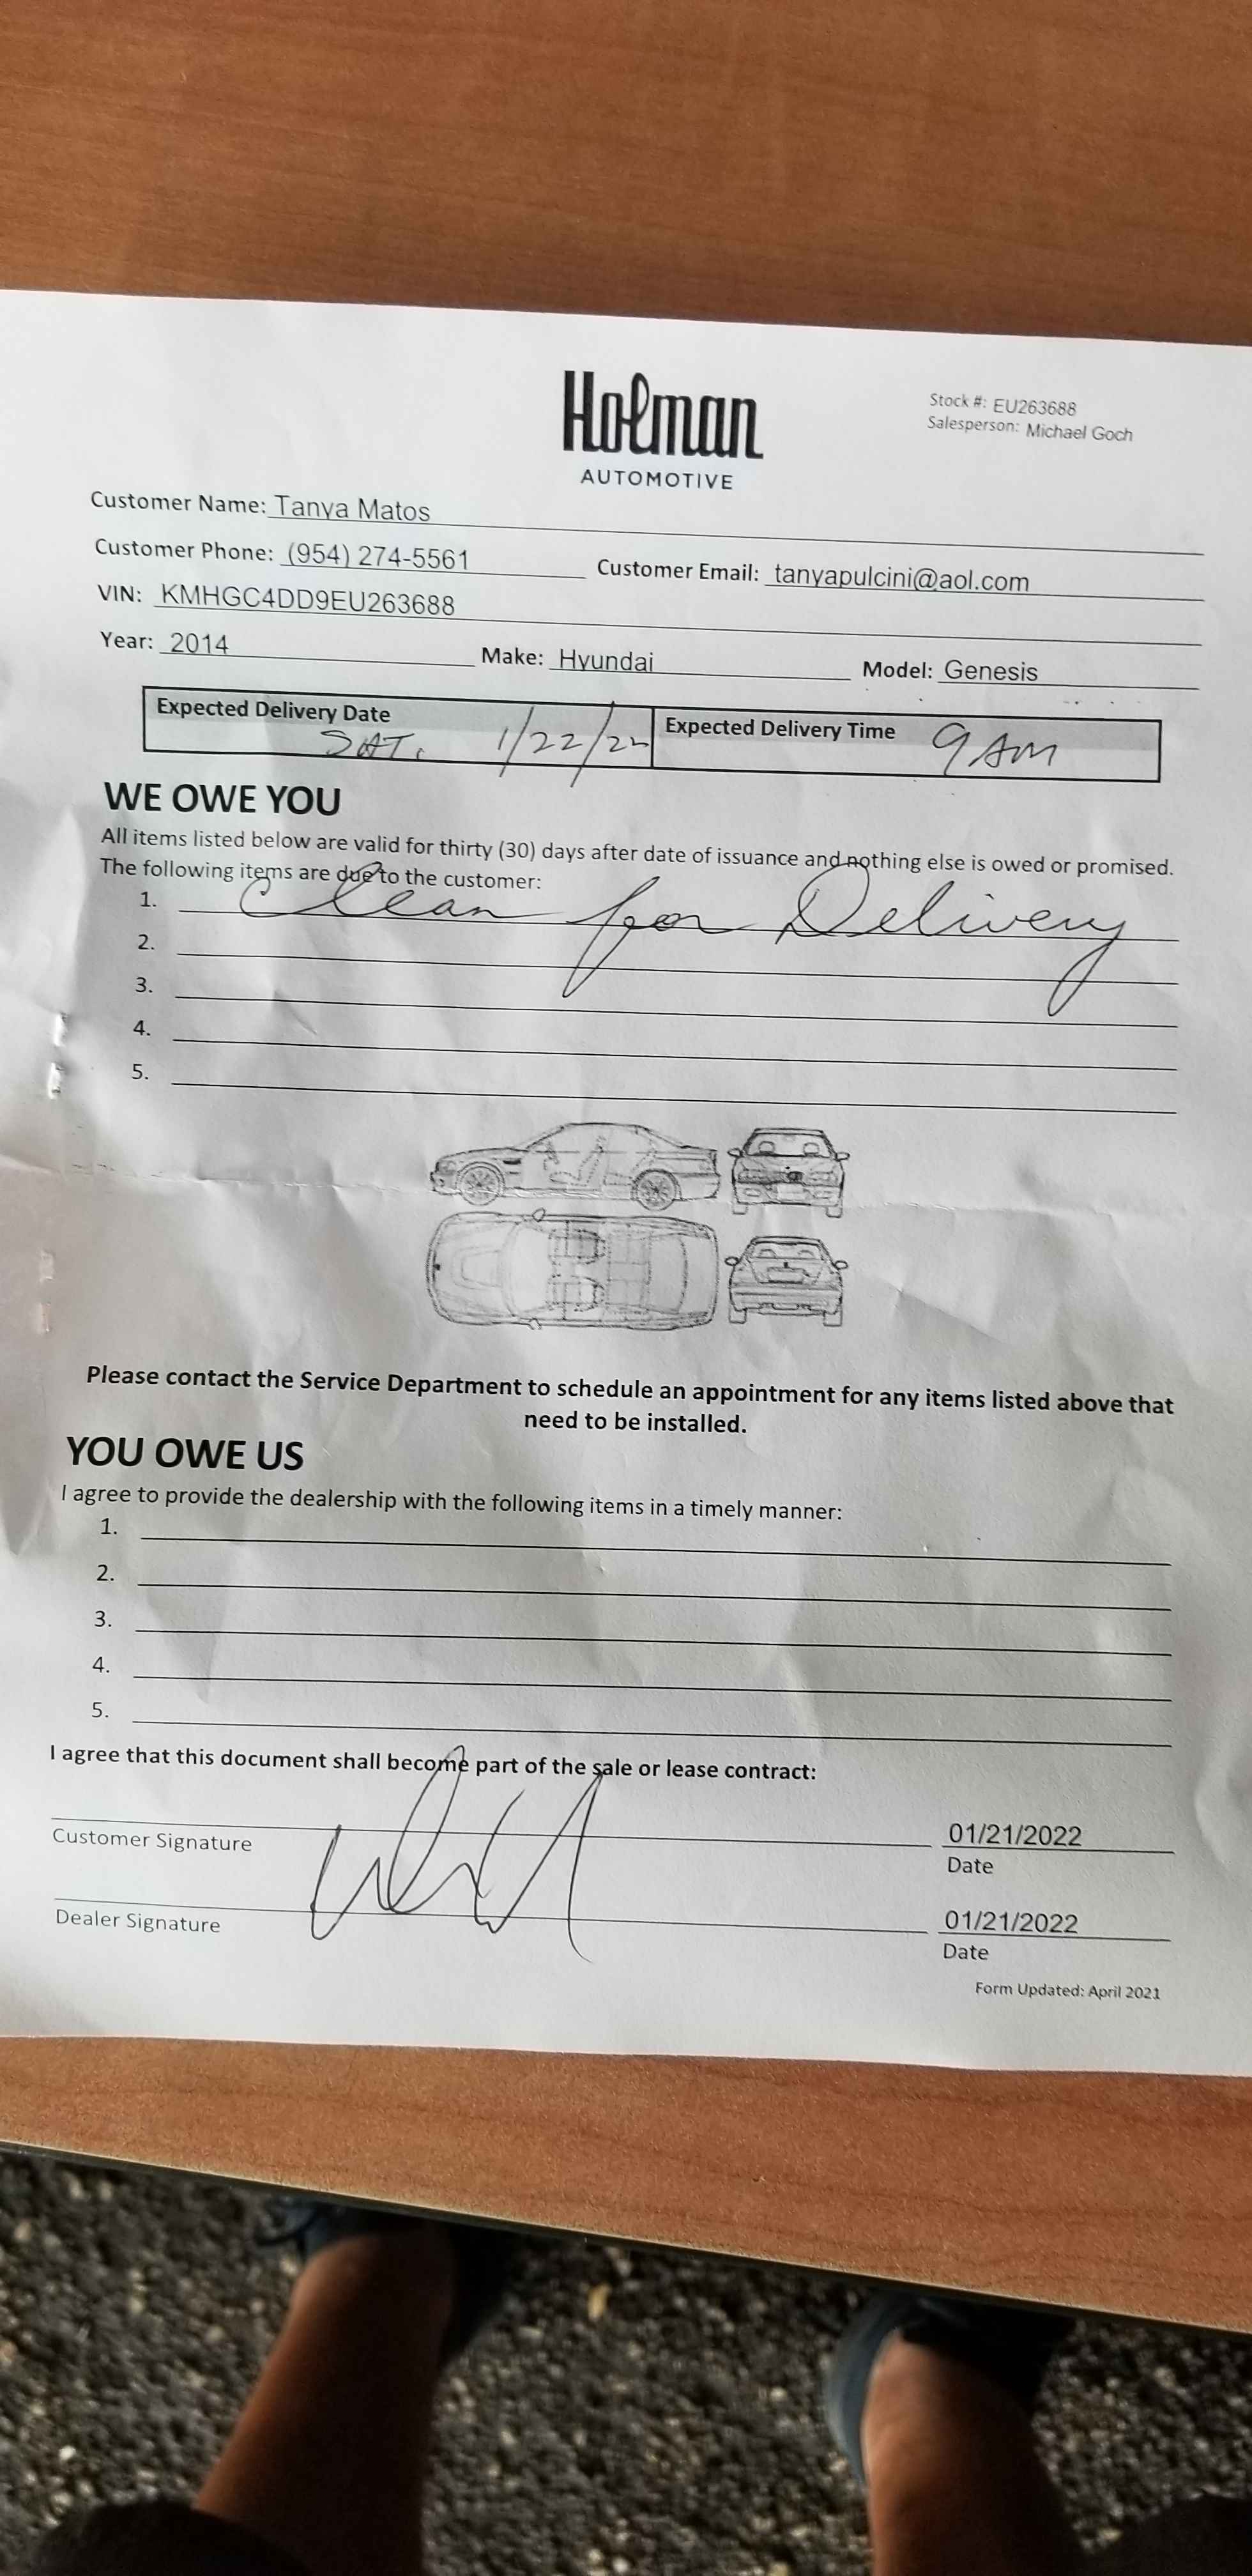 Holman
AUTOMOTIVE
Stock #: EU263688
Salesperson: Michael Goch
Customer Name: Tanya Matos
Customer Phone: (954) 274-5561 Customer Email: tanyapulcini@aol.com
VIN: KMHGC4DD9EU263688
Year: 2014 Make: Hyundai Model: Genesis
Expected Delivery Date SAT. 1/22/22 Expected Delivery Time 9 AM
WE OWE YOU
All items listed below are valid for thirty (30) days after date of issuance and nothing else is owed or promised.
The following items are due to the customer:
1. Clean for Delivery
2.
3.
4.
5.
Please contact the Service Department to schedule an appointment for any items listed above that
need to be installed.
YOU OWE US
I agree to provide the dealership with the following items in a timely manner:
1.
2.
3.
4.
5.
I agree that this document shall become part of the sale or lease contract:
01/21/2022
Customer Signature Date
01/21/2022
Dealer Signature Date
Form Updated: April 2021